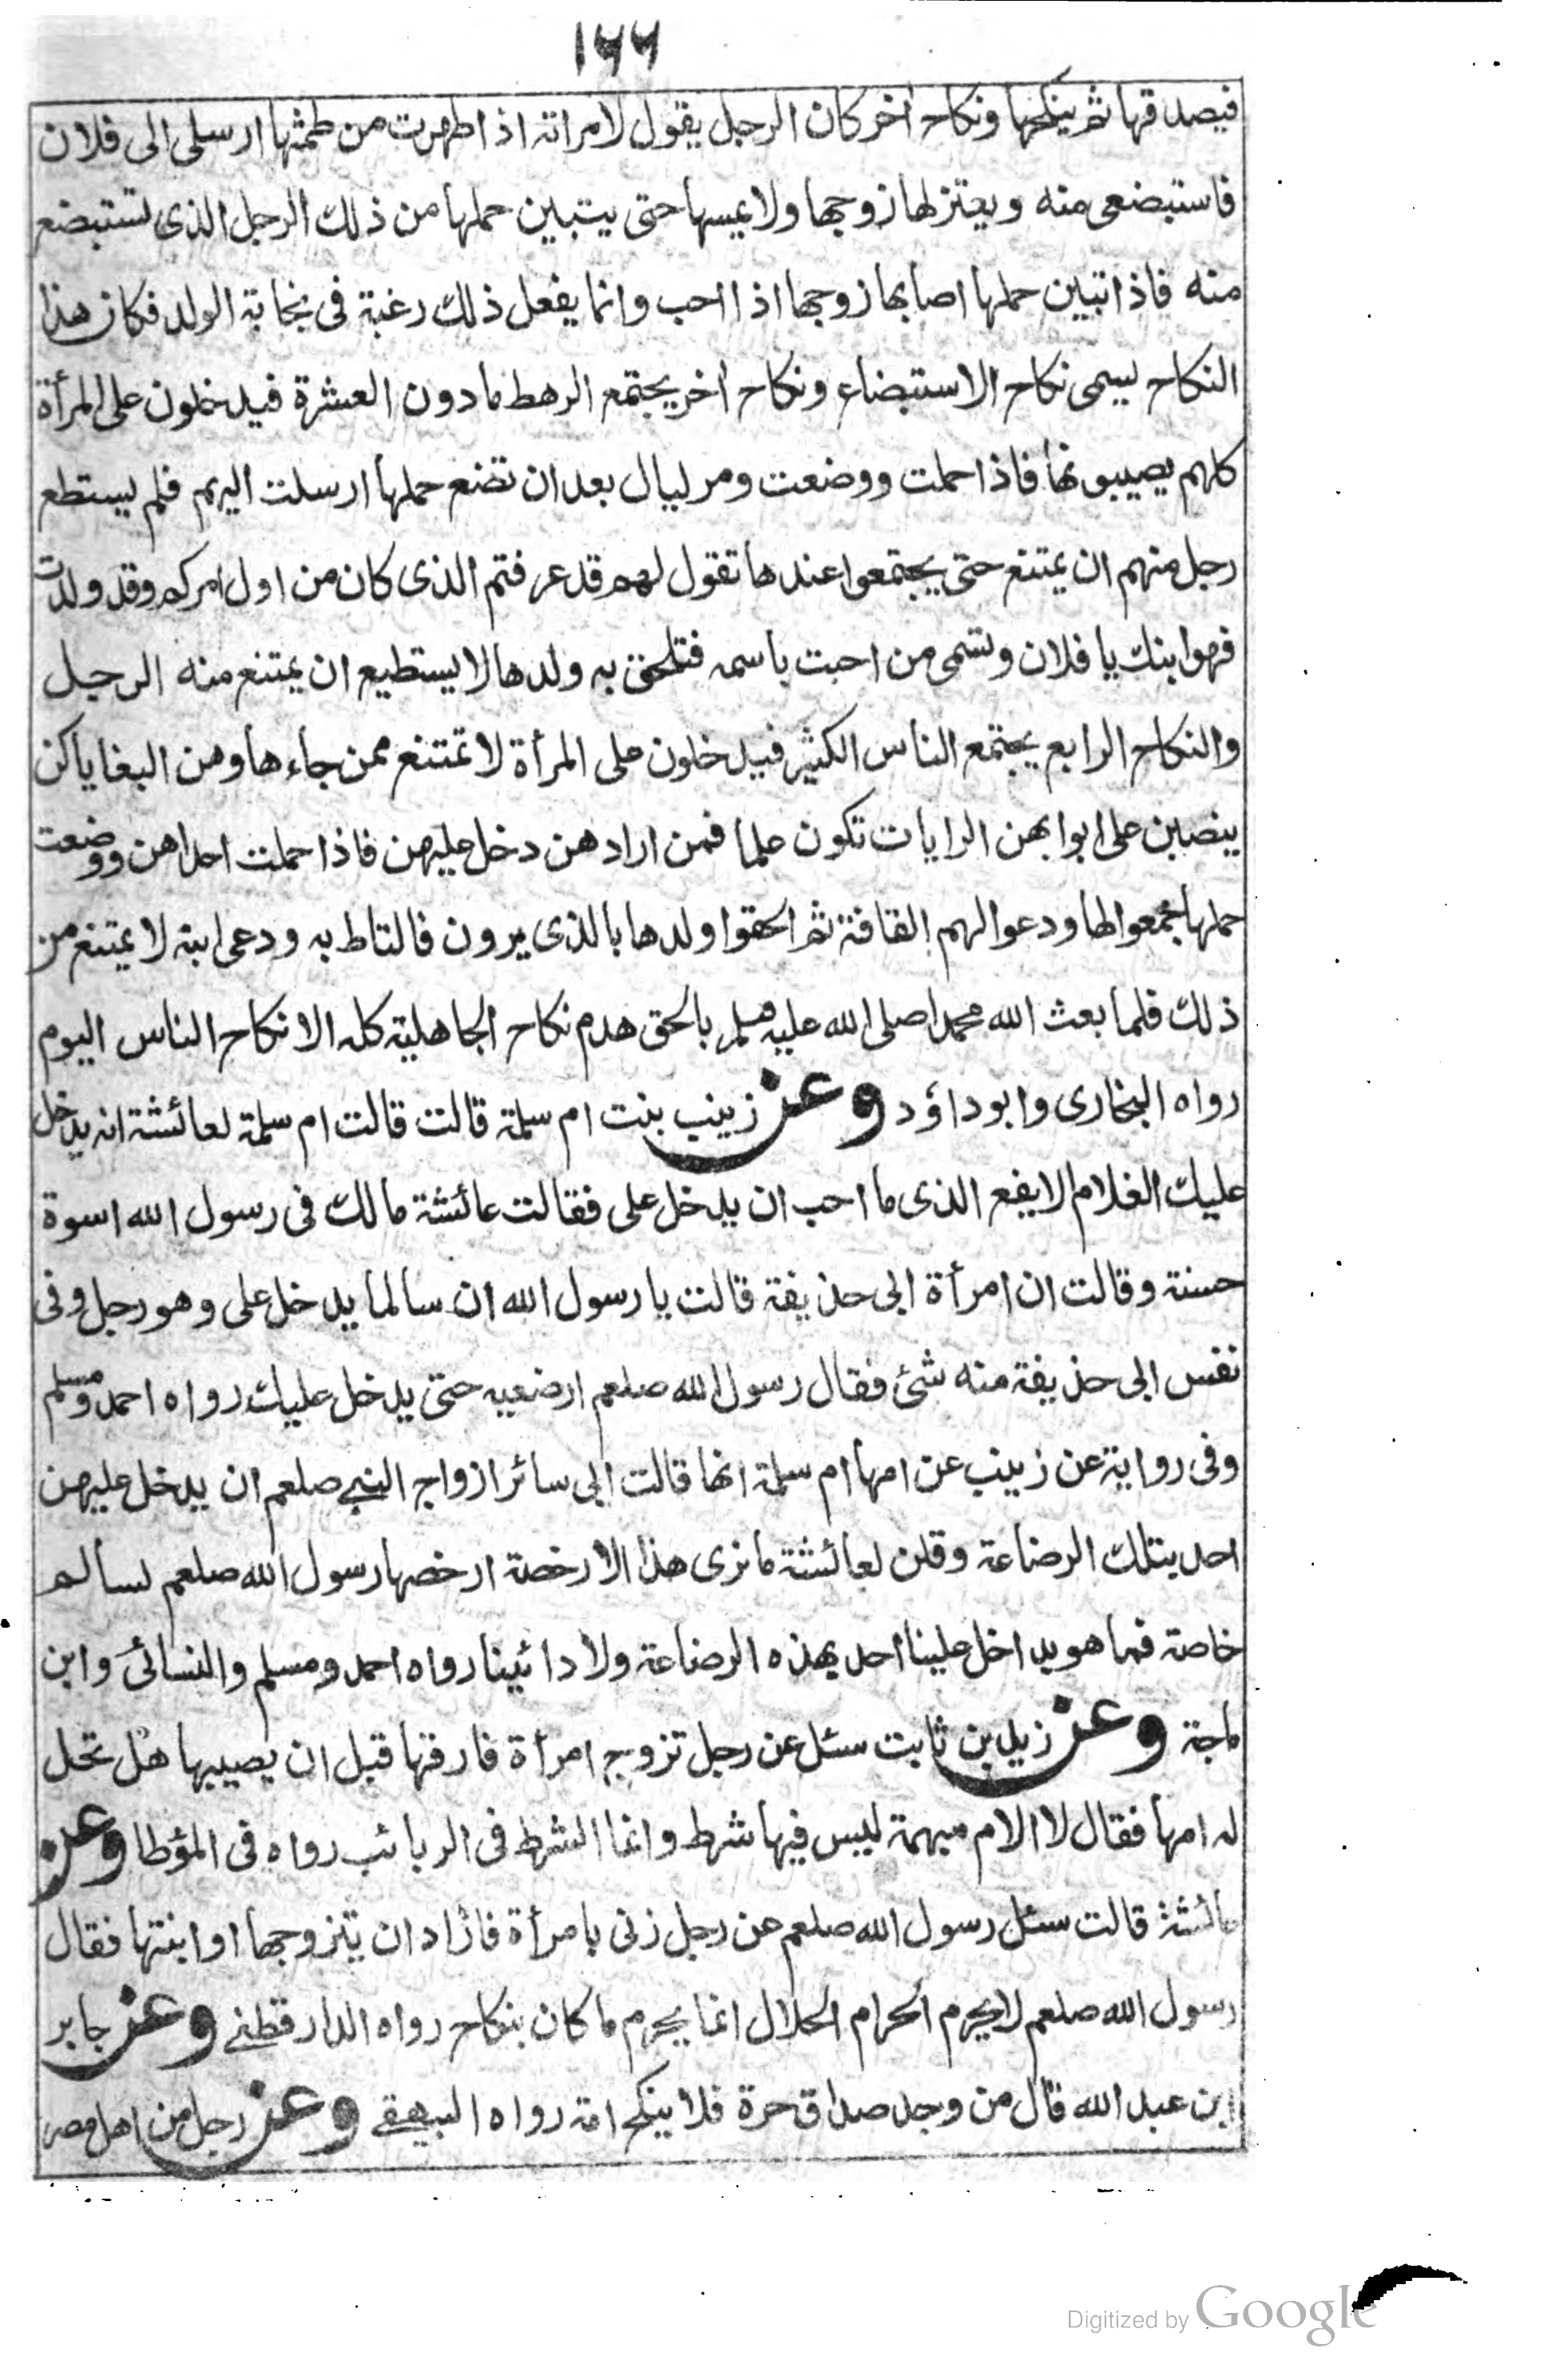 ١٦٦
فيصدقها ثم ينكحها ونكاح اخر كان الرجل يقول لامراته اذا طهرت من طمثها ارسلى الى فلان
فاستبضعى منه ويعتزلها زوجها ولا يمسها حتى يتبين حملها من ذلك الرجل الذى تستبضع
منه فاذا تبين حملها اصابها زوجها اذا احب وانما يفعل ذلك رغبة فى نجابة الولد فكان هذا
النكاح يسمى نكاح الاستبضاع ونكاح اخر يجتمع الرهط مادون العشرة فيدخلون على المرأة
كلهم يصيبونها فاذا حملت ووضعت ومر ليال بعد ان تضع حملها ارسلت اليهم فلم يستطع
رجل منهم ان يمتنع حتى يجتمعوا عندها تقول لهم قد عرفتم الذى كان من اول امركم وقد ولدت
فهو ابنك يا فلان وتسمى من احبت باسمه فتلحق به ولدها لا يستطيع ان يمتنع منه الرجل
والنكاح الرابع يجتمع الناس الكثير فيدخلون على المرأة لا تمتنع ممن جاءها وهن البغايا كن
ينصبن على ابوابهن الرايات تكون علما فمن ارادهن دخل عليهن فاذا حملت احداهن ووضعت
حملها جمعوا لها ودعوا لهم القافة ثم الحقوا ولدها بالذى يرون فالتاط به ودعى ابنه لا يمتنع من
ذلك فلما بعث الله محمدا صلى الله عليه وسلم بالحق هدم نكاح الجاهلية كله الا نكاح الناس اليوم
رواه البخارى وابو داؤد وعن زينب بنت ام سلمة قالت قالت ام سلمة لعائشة انه يدخل
عليك الغلام الايفع الذى ما احب ان يدخل على فقالت عائشة مالك فى رسول الله اسوة
حسنة وقالت ان امرأة ابى حذيفة قالت يا رسول الله ان سالما يدخل على وهو رجل وفى
نفس ابى حذيفة منه شئ فقال رسول الله صلعم ارضعيه حتى يدخل عليك رواه احمد ومسلم
وفى رواية عن زينب عن امها ام سلمة انها قالت ابى سائر ازواج النبى صلعم ان يدخل عليهن
احد بتلك الرضاعة وقلن لعائشة ما نرى هذا الا رخصة ارخصها رسول الله صلعم لسالم
خاصة فما هو بداخل علينا احد بهذه الرضاعة ولا رائينا رواه احمد ومسلم والنسائى وابن
ماجة وعن زيد بن ثابت سئل عن رجل تزوج امرأة فارقها قبل ان يصيبها هل تحل
له امها فقال لا الام مبهمة ليس فيها شرط وانما الشرط فى الربائب رواه فى المؤطا وعن
عائشة قالت سئل رسول الله صلعم عن رجل زنى بامرأة فاراد ان يتزوجها او ابنتها فقال
رسول الله صلعم لا يحرم الحرام الحلال انما يحرم ما كان بنكاح رواه الدارقطنى وعن جابر
ابن عبد الله قال من وجد صداق حرة فلا ينكح امة رواه البيهقى وعن رجل من اهل مصر
Digitized by Google